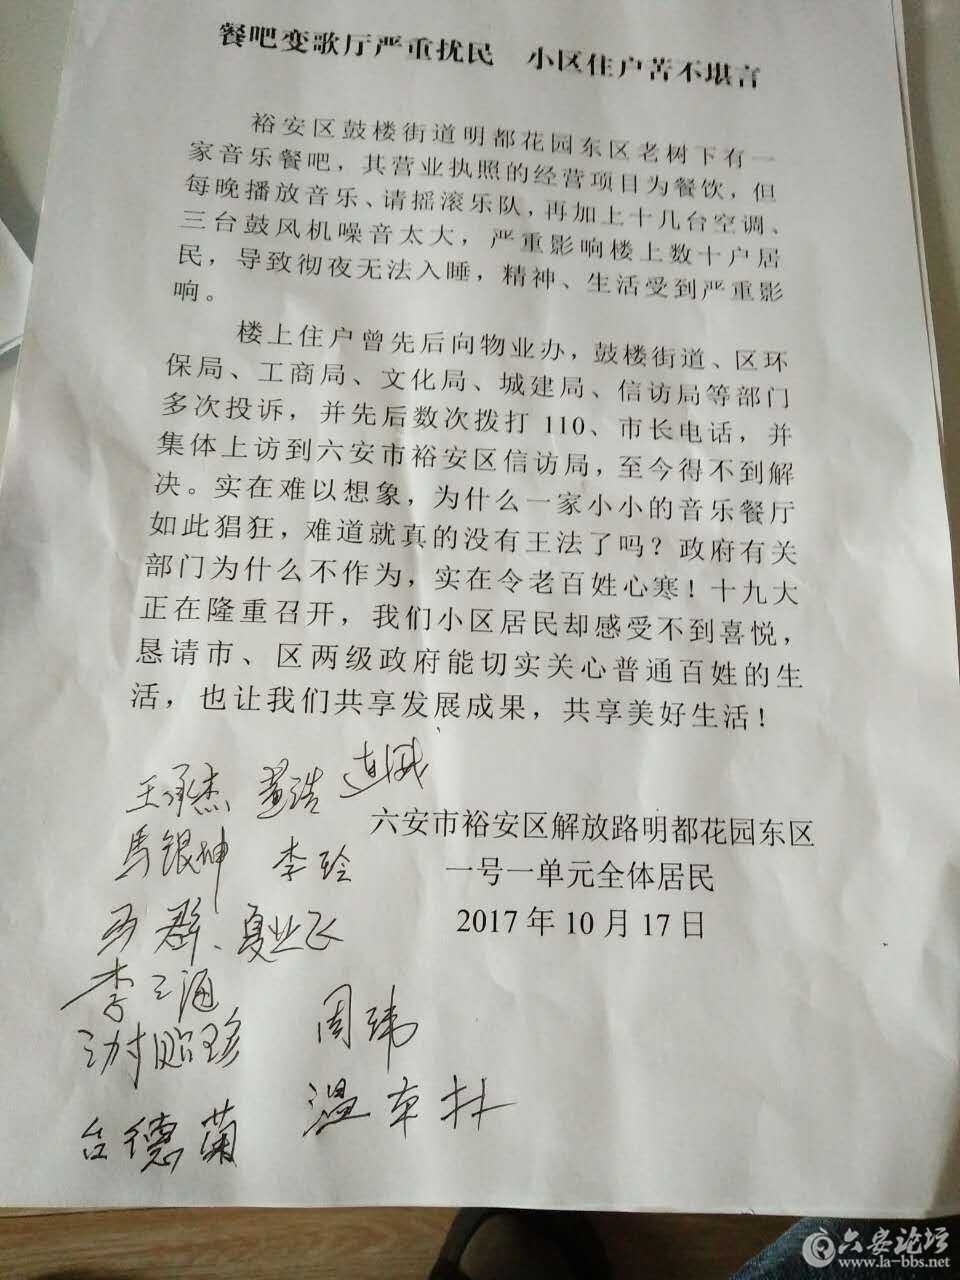 餐吧变歌厅严重扰民　小区住户苦不堪言
裕安区鼓楼街道明都花园东区老树下有一
家音乐餐吧，其营业执照的经营项目为餐饮，但
每晚播放音乐、请摇滚乐队，再加上十几台空调、
三台鼓风机噪音太大，严重影响楼上数十户居
民，导致彻夜无法入睡，精神、生活受到严重影
响。
楼上住户曾先后向物业办，鼓楼街道、区环
保局、工商局、文化局、城建局、信访局等部门
多次投诉，并先后数次拨打 110、市长电话，并
集体上访到六安市裕安区信访局，至今得不到解
决。实在难以想象，为什么一家小小的音乐餐厅
如此猖狂，难道就真的没有王法了吗？政府有关
部门为什么不作为，实在令老百姓心寒！十九大
正在隆重召开，我们小区居民却感受不到喜悦，
恳请市、区两级政府能切实关心普通百姓的生
活，也让我们共享发展成果，共享美好生活！
王承杰 董浩
六安市裕安区解放路明都花园东区
马银坤 李玲
一号一单元全体居民
夏业飞
2017 年 10 月 17 日
李三海
周玮
台德菊
六安论坛
www.la-bbs.net